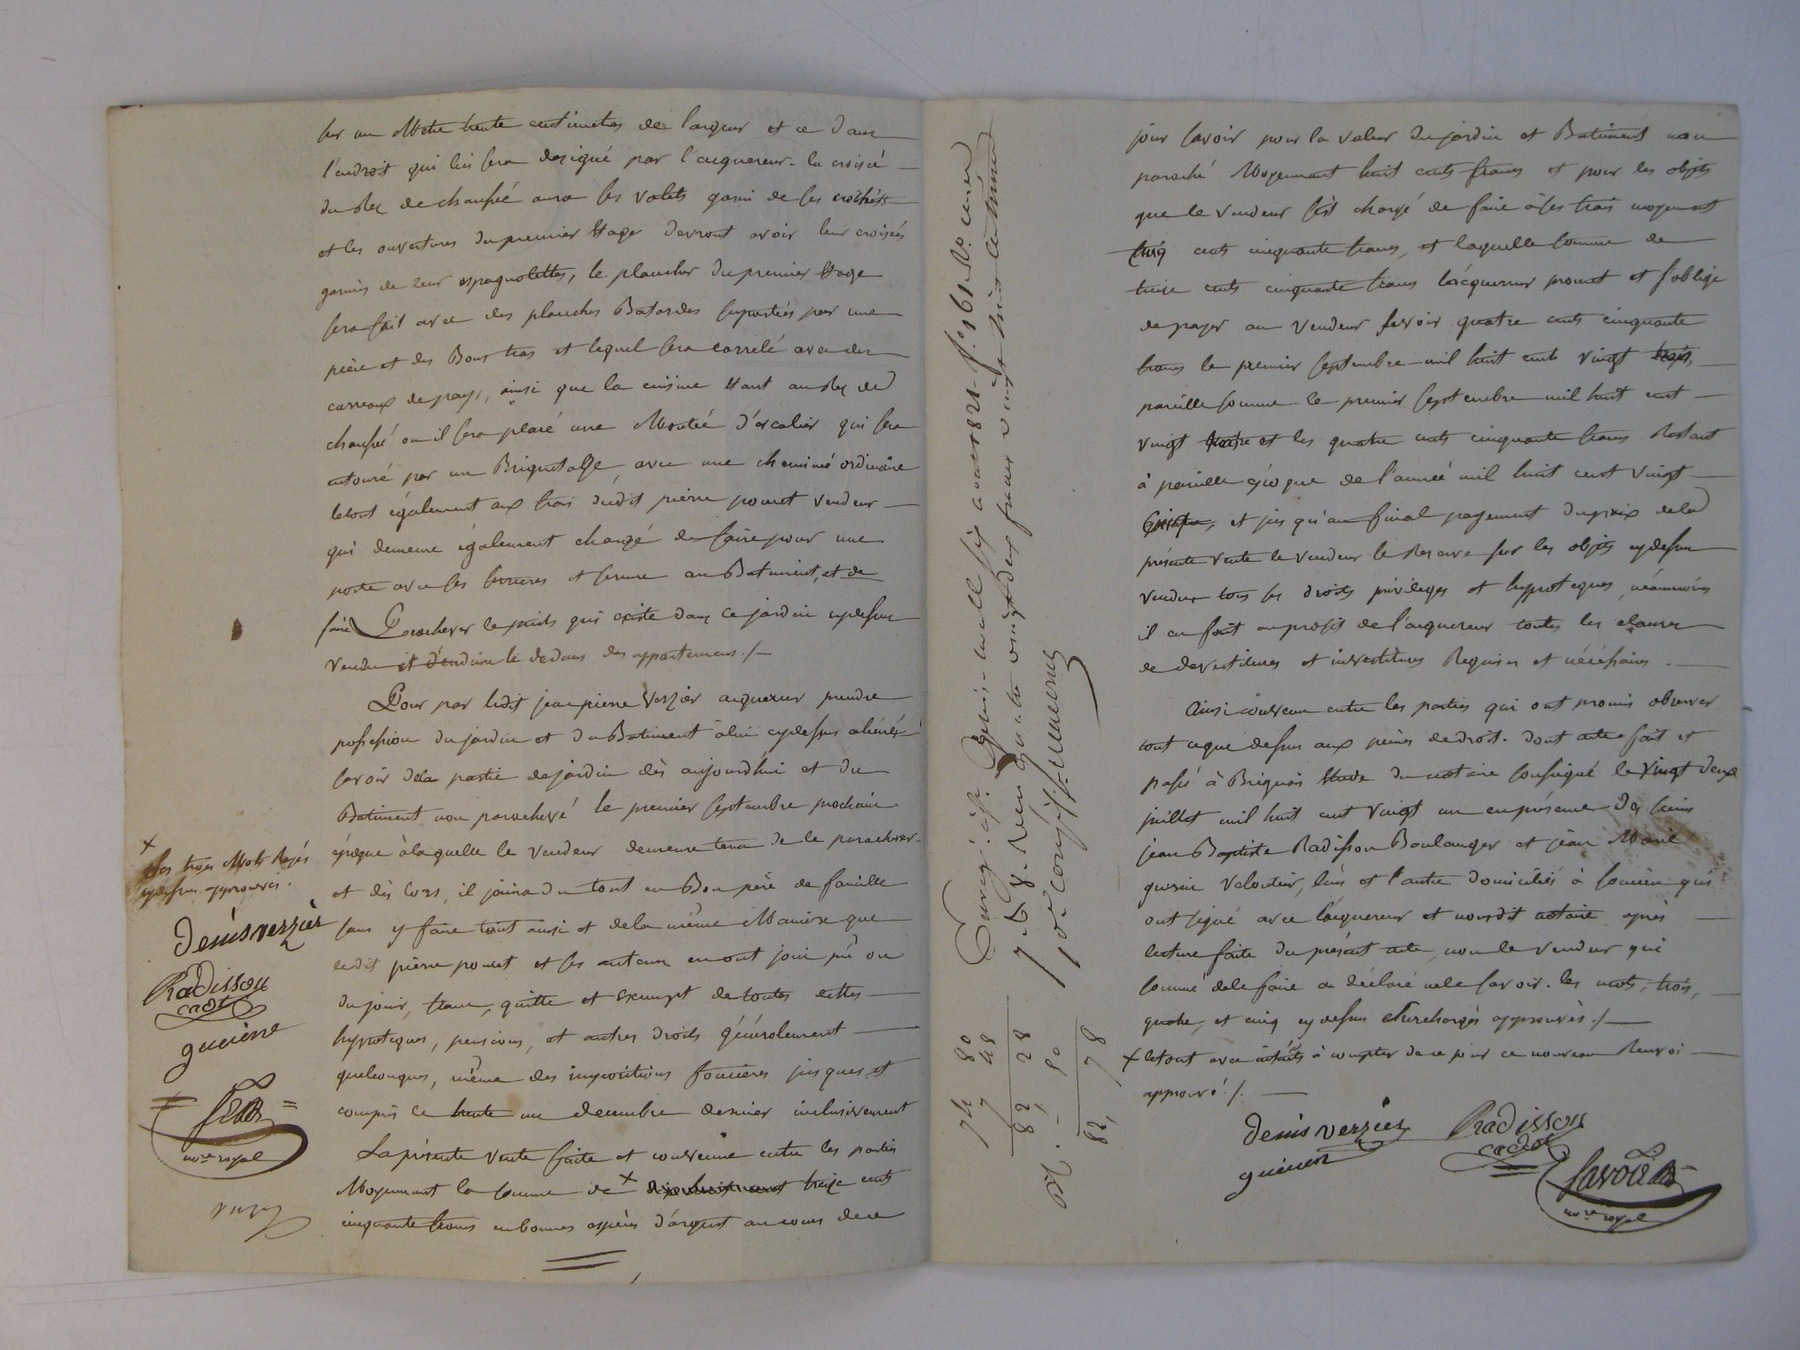 sur un Metre trente centimetres de largeur et ce dans
l'endroit qui lui sera designé par l'acquereur. la croisée
du Rez de chaussée aura ses volets garni de ses crochets
et les ouvertures du premier Etage devront avoir leur croisées
garnies de leur espagnolettes, le plancher du premier Etage
sera fait avec des planches Batardes suportées par une
pièce et des Bous tras et lequel sera carrelé avec des
carreaux de pays, ainsi que la cuisine Etant au Rez de
chaussé ou il sera placé une Montée d'escalier qui sera
entouré par un Briquetage avec une cheminée ordinaire
le tout également aux frais dudit pierre poncet vendeur
qui demeure également chargé de faire poser une
porte avec ses serrures et ferrure au Batiment, et de
faire Parachever le puits qui existe dans ce jardin cydessus
vendu et d'enduire le dedans des appartemens ./.
Pour par ledit jean pierre Verzier acquereur prendre
possession du jardin et du Batiment à lui cydessus aliénés
savoir de la partie de jardin dès aujourdhui et du
Batiment non parachevé le premier septembre prochain
époque à laquelle le vendeur demeure tenu de le parachever
et dès lors, il jouira du tout en Bon père de famille
sans y faire tout ainsi et de la même Maniere que
ledit pierre poncet et ses auteurs en ont joui pû ou
du jouir, franc, quitte et exempt de toutes dettes
hypoteques, pensions, et autres droits généralement
quelconques, même des impositions foncières jusques et
compris le trente un decembre dernier inclusivement
La présente vente faite et convenue entre les parties
Moyennant la somme de x treize cents
cinquante francs en bonnes espèces d'argent au cours de ce
x
Les trois Mots Rayés
cydessus approuvés.
Denis verzier
Radisson
cadet
guerin
nore royal
Enregistré 1821. fo. 161
7 48
82 28
82, 78
jour savoir pour la valeur du jardin et Batiment non
paraché Moyennant huit cents francs et pour les objets
que le vendeur s'est chargé de faire à ses frais moyennant
cinq cents cinquante francs, et laquelle somme de
treize cents cinquante francs l'acquereur promet et s'oblige
de payer au vendeur savoir quatre cents cinquante
francs le premier septembre mil huit cents vingt trois,
pareille somme le premier septembre mil huit cent
vingt quatre et les quatre cents cinquante francs Restant
à pareille époque de l'année mil huit cent vingt
cinq, et jusqu'au final payement du prix de la
présente vente le vendeur se Reserve sur les objets cydessus
vendus tous ses droits privileges et hypoteques, néanmoins
il en fait au profit de l'acquereur toutes les clauses
de devestitures et investitures Requises et nécéssaires.
Ainsi convenu entre les parties qui ont promis observer
tout ce que dessus aux peines de droit. dont acte fait et
passé à Brignais Etude du notaire soussigné le vingt deux
juillet mil huit cent vingt un en présence des sieurs
jean Baptiste Radisson Boulanger et jean Marie
guerin Veloutier, l'un et l'autre domiciliés à soucieu qui
ont signé avec l'acquereur et nousdit notaire après
lecture faite du présent acte, non le vendeur qui
sommé de le faire a déclaré ne le savoir. les mots, trois,
quatre, et cinq cydessus surchargés approuvés ./.
x le tout avec intérêts à compter de ce jour ce nouveau Renvoi
approuvé ./.
Denis verzier Radisson
cadet
guerin
nore royal